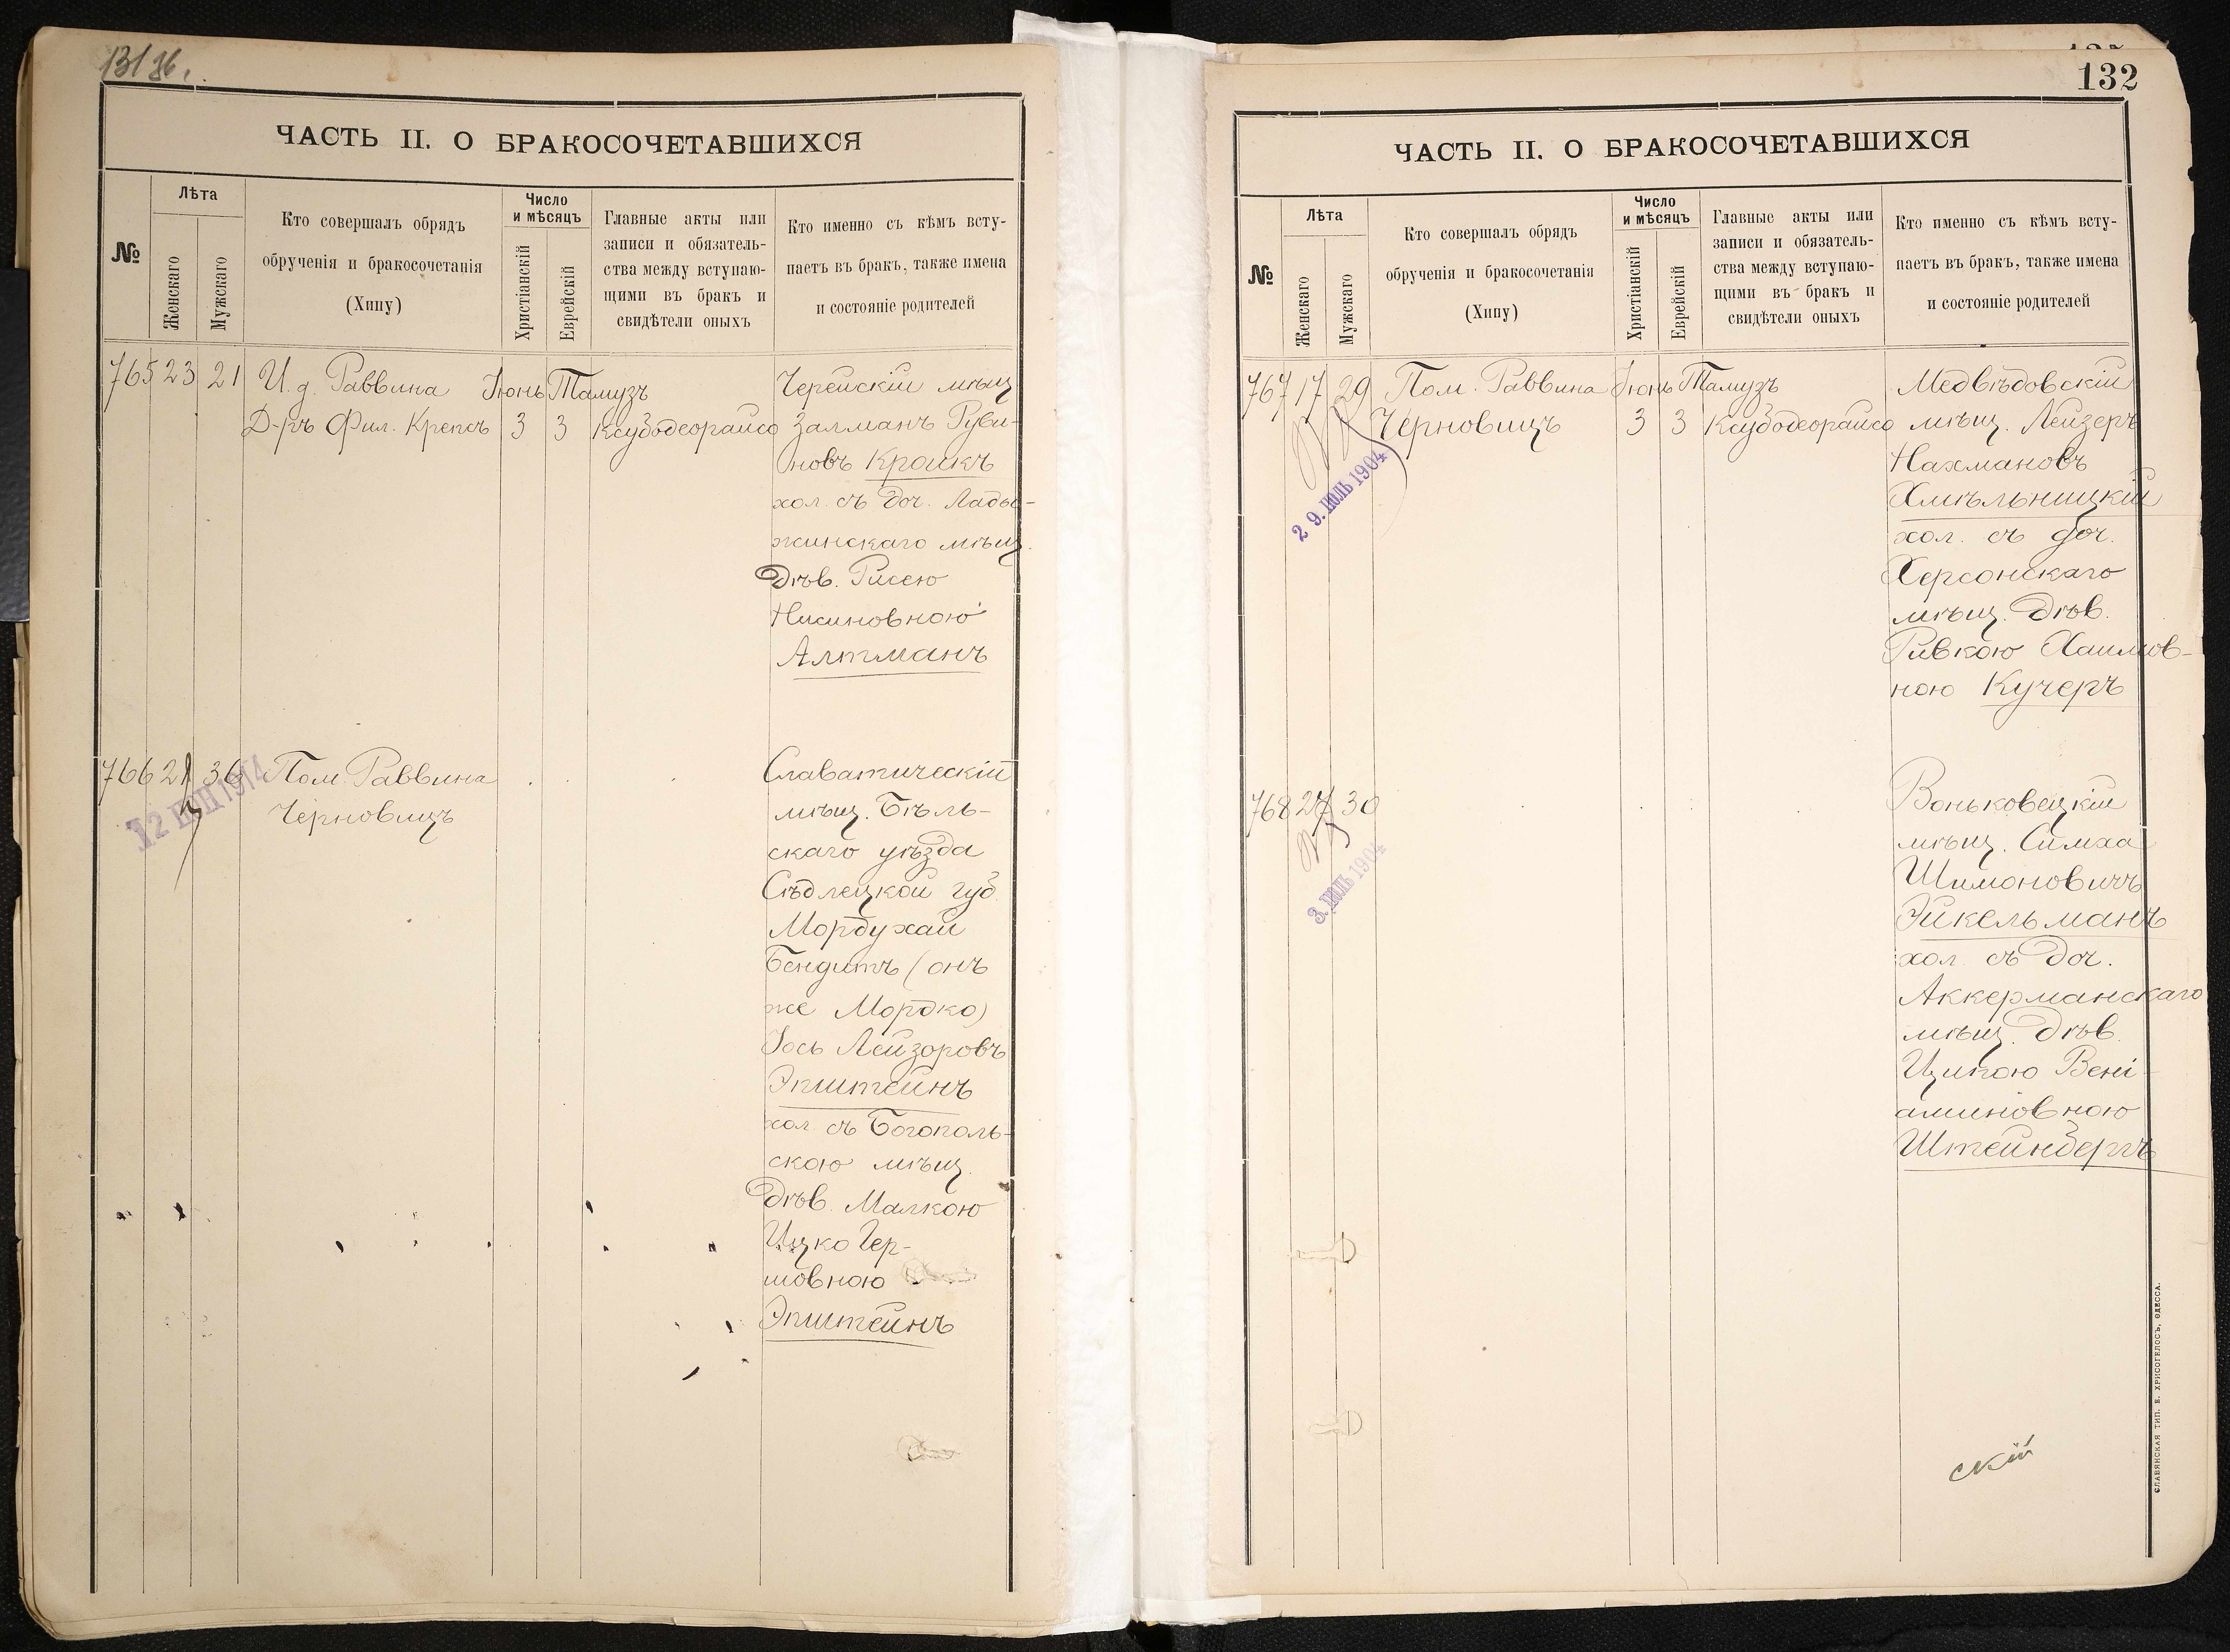 131 об.
ЧАСТЬ II. О БРАКОСОЧЕТАВШИХСЯ
№
Лѣта
Женскаго
Мужскаго
Кто совершалъ обрядъ
обрученія и бракосочетанія
(Хипу)
Число
и мѣсяцъ
Христіанскій
Еврейскій
Главные акты или
записи и обязатель-
ства между вступаю-
щими въ бракъ и
свидѣтели оныхъ
Кто именно съ кѣмъ всту-
паетъ въ бракъ, также имена
и состояніе родителей
765 23 21 И. д. Раввина Іюнь Тамузъ
Д-ръ Фил. Крепсъ 3 3 Ксубодеорайсо
Черейскій мѣщ
Залманъ Руви-
новъ Кройкъ
хол. съ доч. Ладыж-
жинскаго мѣщ.
Дѣв. Рисею
Нисиновною
Алтманъ
766 21 36 Пом. Раввина
Черновицъ
12 ІЮН 1914
Славатическій
мѣщ. Бѣль-
скаго уѣзда
Сѣдлецкой губ
Мордухай
Бендитъ (онъ
же Мордко)
Іось Лейзоровъ
Эпштейнъ
хол. съ Богополь-
скою мѣщ.
Дѣв. Малкою
Ицко Гер-
шовною
Эпштейнъ
132
ЧАСТЬ II. О БРАКОСОЧЕТАВШИХСЯ
№
Лѣта
Женскаго
Мужскаго
Кто совершалъ обрядъ
обрученія и бракосочетанія
(Хипу)
Число
и мѣсяцъ
Христіанскій
Еврейскій
Главные акты или
записи и обязатель-
ства между вступаю-
щими въ бракъ и
свидѣтели оныхъ
Кто именно съ кѣмъ всту-
паетъ въ бракъ, также имена
и состояніе родителей
767 17 29 Пом. Раввина Іюнь Тамузъ
Черновицъ 3 3 Ксубодеорайсо
29. ІЮЛЬ 1904
Медвѣдовскій
мѣщ. Лейзеръ
Нахмановъ
Хмѣльницкій
хол. съ доч.
Херсонскаго
мѣщ. Дѣв.
Ривкою Хаимов-
ною Кучеръ
768 24 30
3. ІЮЛЬ 1904
Воньковецкій
мѣщ. Симха
Шимоновичъ
Эйкельманъ
хол. съ доч.
Аккерманскаго
мѣщ. Дѣв.
Ципою Вені-
аминовною
Штейнбергъ
скій
СЛАВЯНСКАЯ ТИП. Е. ХРИСОГЕЛОСЪ, ОДЕССА.